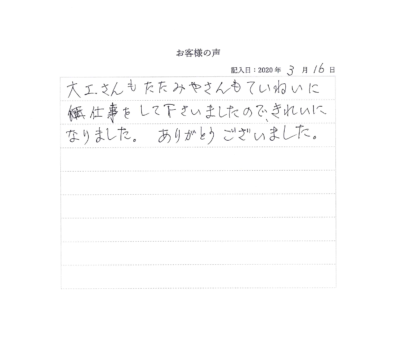 お客様の声
記入日：2020年 3 月 16 日
大工さんもたたみやさんもていねいに
仕事をして下さいましたので、きれいに
なりました。 ありがとうございました。